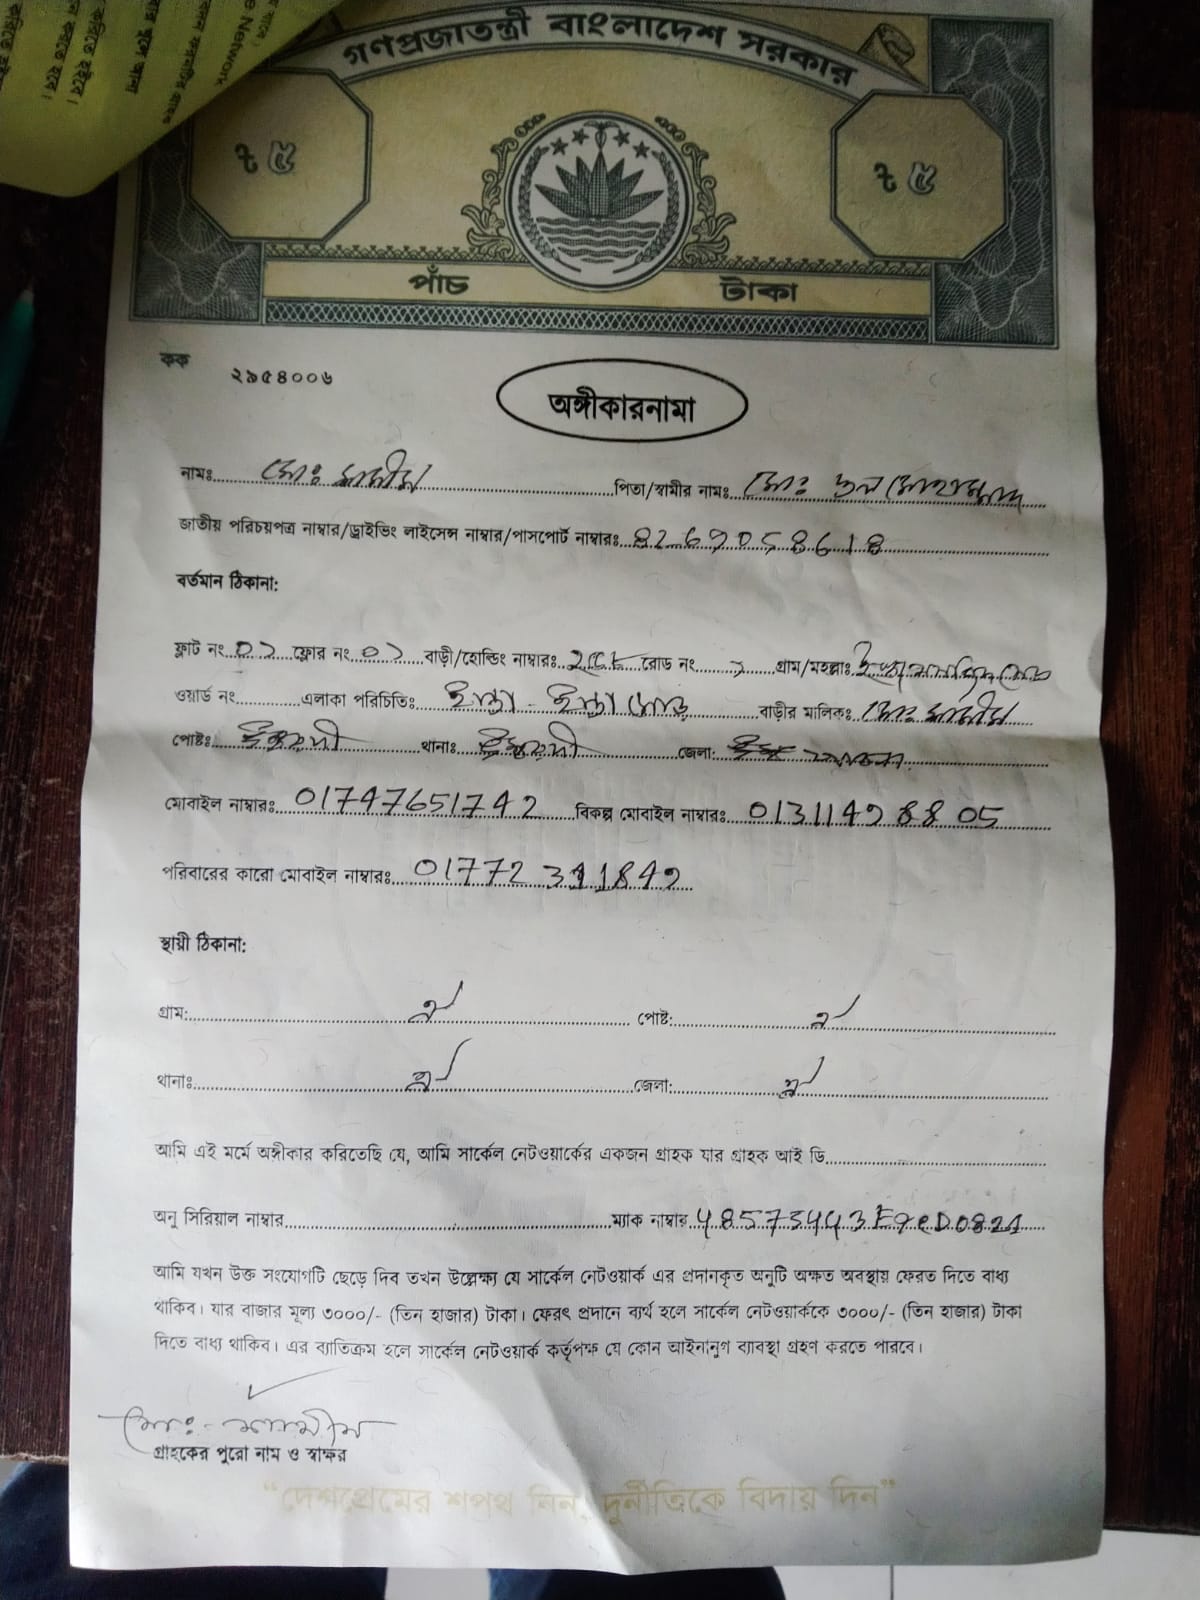 গণপ্রজাতন্ত্রী বাংলাদেশ সরকার
৳ ৫
৳ ৫
পাঁচ টাকা
কক ২৯৫৪০০৬
অঙ্গীকারনামা
নামঃ মোঃ শামীম পিতা/স্বামীর নামঃ মোঃ
জাতীয় পরিচয়পত্র নাম্বার/ড্রাইভিং লাইসেন্স নাম্বার/পাসপোর্ট নাম্বারঃ
বর্তমান ঠিকানা:
ফ্লাট নং ০১ ফ্লোর নং ০১ বাড়ী/হোল্ডিং নাম্বারঃ রোড নং গ্রাম/মহল্লাঃ
ওয়ার্ড নং এলাকা পরিচিতিঃ বাড়ীর মালিকঃ মোঃ শামীম
পোষ্টঃ ঈশ্বরদী থানাঃ ঈশ্বরদী জেলা: পাবনা
মোবাইল নাম্বারঃ 01747651742 বিকল্প মোবাইল নাম্বারঃ
পরিবারের কারো মোবাইল নাম্বারঃ
স্থায়ী ঠিকানা:
গ্রাম: ঐ পোষ্ট: ঐ
থানাঃ ঐ জেলা: ঐ
আমি এই মর্মে অঙ্গীকার করিতেছি যে, আমি সার্কেল নেটওয়ার্কের একজন গ্রাহক যার গ্রাহক আই ডি
অনু সিরিয়াল নাম্বার ম্যাক নাম্বার
আমি যখন উক্ত সংযোগটি ছেড়ে দিব তখন উল্লেক্ষ্য যে সার্কেল নেটওয়ার্ক এর প্রদানকৃত অনুটি অক্ষত অবস্থায় ফেরত দিতে বাধ্য
থাকিব। যার বাজার মূল্য ৩০০০/- (তিন হাজার) টাকা। ফেরৎ প্রদানে ব্যর্থ হলে সার্কেল নেটওয়ার্ককে ৩০০০/- (তিন হাজার) টাকা
দিতে বাধ্য থাকিব। এর ব্যাতিক্রম হলে সার্কেল নেটওয়ার্ক কর্তৃপক্ষ যে কোন আইনানুগ ব্যাবস্থা গ্রহণ করতে পারবে।
মোঃ শামীম
গ্রাহকের পুরো নাম ও স্বাক্ষর
“দেশপ্রেমের শপথ নিন, দুর্নীতিকে বিদায় দিন”